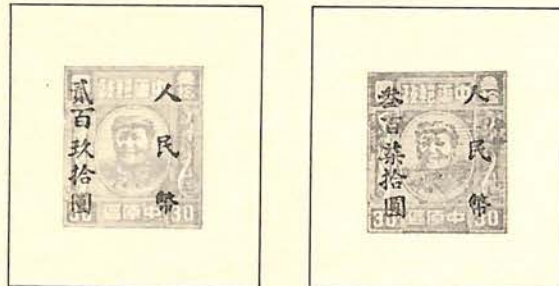 人民幣
貳百玖拾圓
30 區原中 30
人民幣
叁百柒拾圓
30 區原中 30